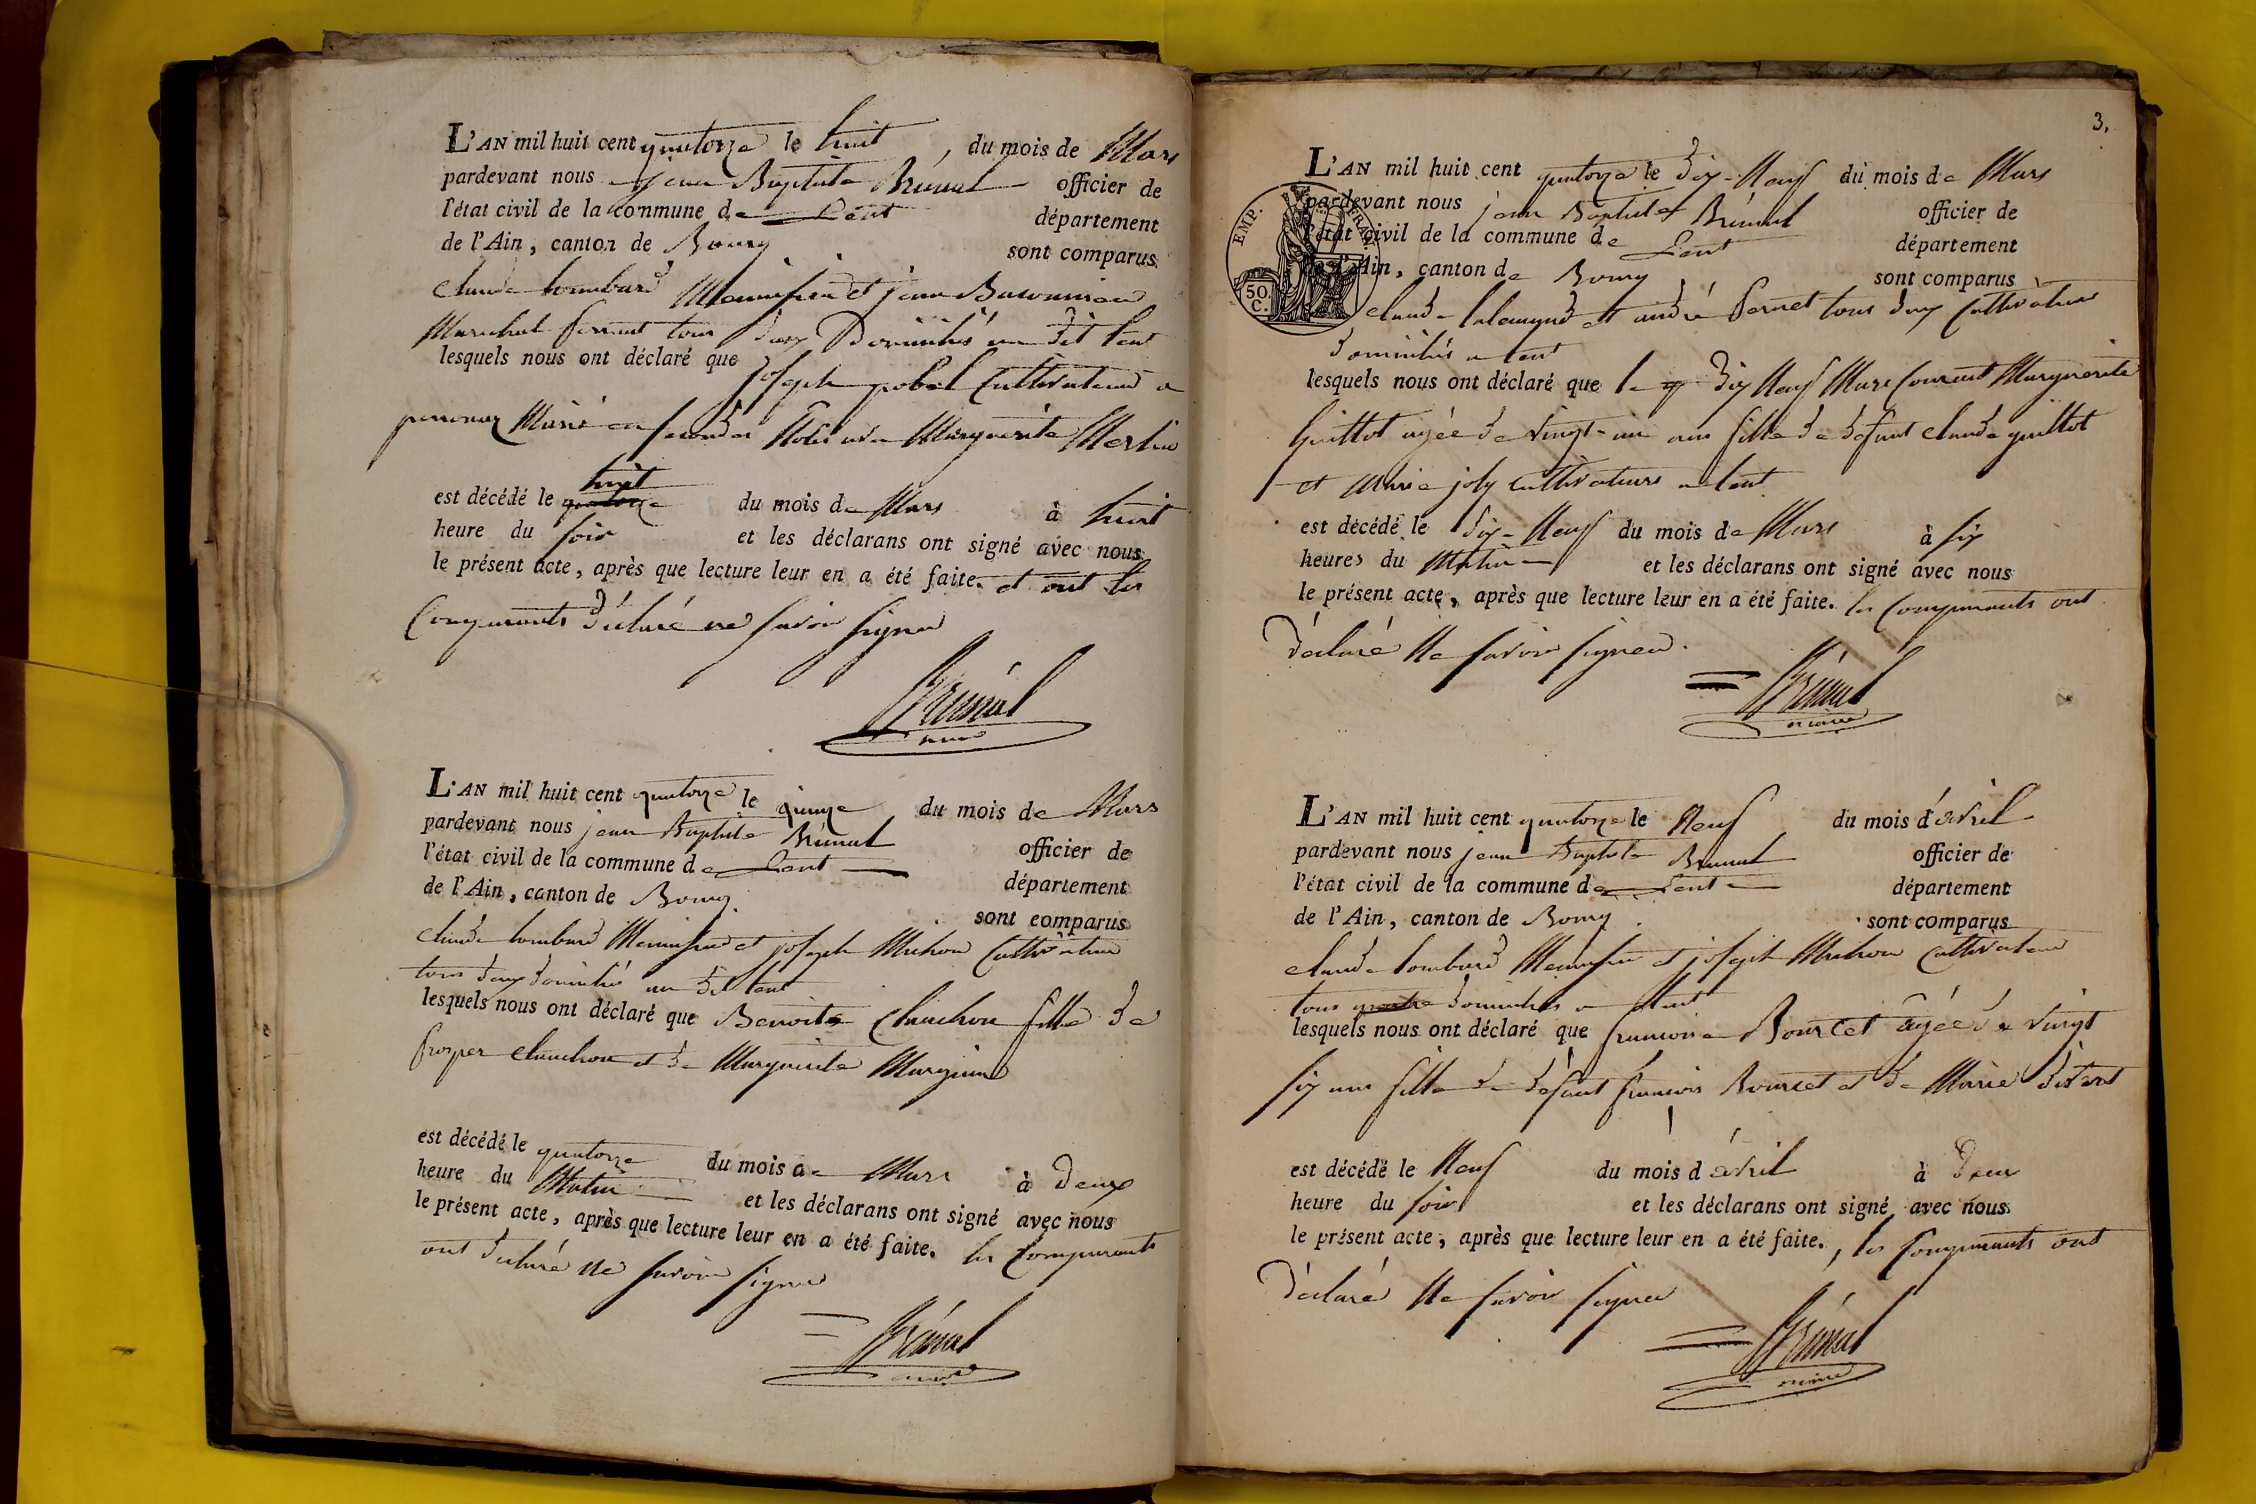 L'AN mil huit cent quatorze le huit, du mois de Mars
pardevant nous jean Baptiste Brunal officier de
l'état civil de la commune de Lent département
de l'Ain, canton de Bourg sont comparus
claude Lombard Menuisier et jean
Marechal ferrant tous deux Domiciliés au dit lent
lesquels nous ont déclaré que joseph pobel Cultivateur a
perronaz Marié en secondes Noces avec Marguerite Merlin
huit
est décédé le quatorze du mois de Mars à huit
heure du soir et les déclarans ont signé avec nous
le présent acte, après que lecture leur en a été faite. et ont les
Comparants déclaré ne savoir signer
Brunal
maire
L'AN mil huit cent quatorze le quinze du mois de Mars
pardevant nous jean Baptiste Brunal officier de
l'état civil de la commune de Lent département
de l'Ain, canton de Bourg sont comparus
claude Lombard Menuisier et joseph Michon Cultivateur
tous deux domiciliés au dit lent
lesquels nous ont déclaré que Benoite Clanchon fille de
prosper clanchon et de Marguerite
est décédé le quatorze du mois de Mars à Deux
heure du Matin et les déclarans ont signé avec nous
le présent acte, après que lecture leur en a été faite. les Comparants
ont déclaré ne savoir signer
Brunal
maire
3.
L'AN mil huit cent quatorze le dix-Neuf du mois de Mars
pardevant nous jean Baptiste Brunal officier de
l'état civil de la commune de Lent département
de l'Ain, canton de Bourg sont comparus
EMP. FRAN.
50.
C.
claude et andré fernet tous deux Cultivateurs
domiciliés a lent
lesquels nous ont déclaré que le dix Neuf Mars Courant Marguerite
Guillot agée de vingt-un ans fille de défunt claude guillot
et Marie joly cultivateurs a lent
est décédé le dix-Neuf du mois de Mars à six
heures du Matin et les déclarans ont signé avec nous
le présent acte, après que lecture leur en a été faite. les Comparants ont
déclaré Ne savoir signer.
Brunal
maire
L'AN mil huit cent quatorze le Neuf du mois d'avril
pardevant nous jean Baptiste Brunal officier de
l'état civil de la commune de Lent département
de l'Ain, canton de Bourg sont comparus
claude Lombard Menuisier et joseph Michon Cultivateur
tous domiciliés a lent
lesquels nous ont déclaré que francoise Bourcet agée de vingt
six ans fille de défunt francois Bourcet et de Marie
est décédé le Neuf du mois d'avril à Deux
heure du soir et les déclarans ont signé avec nous
le présent acte, après que lecture leur en a été faite., les Comparants ont
déclaré Ne savoir signer
Brunal
maire